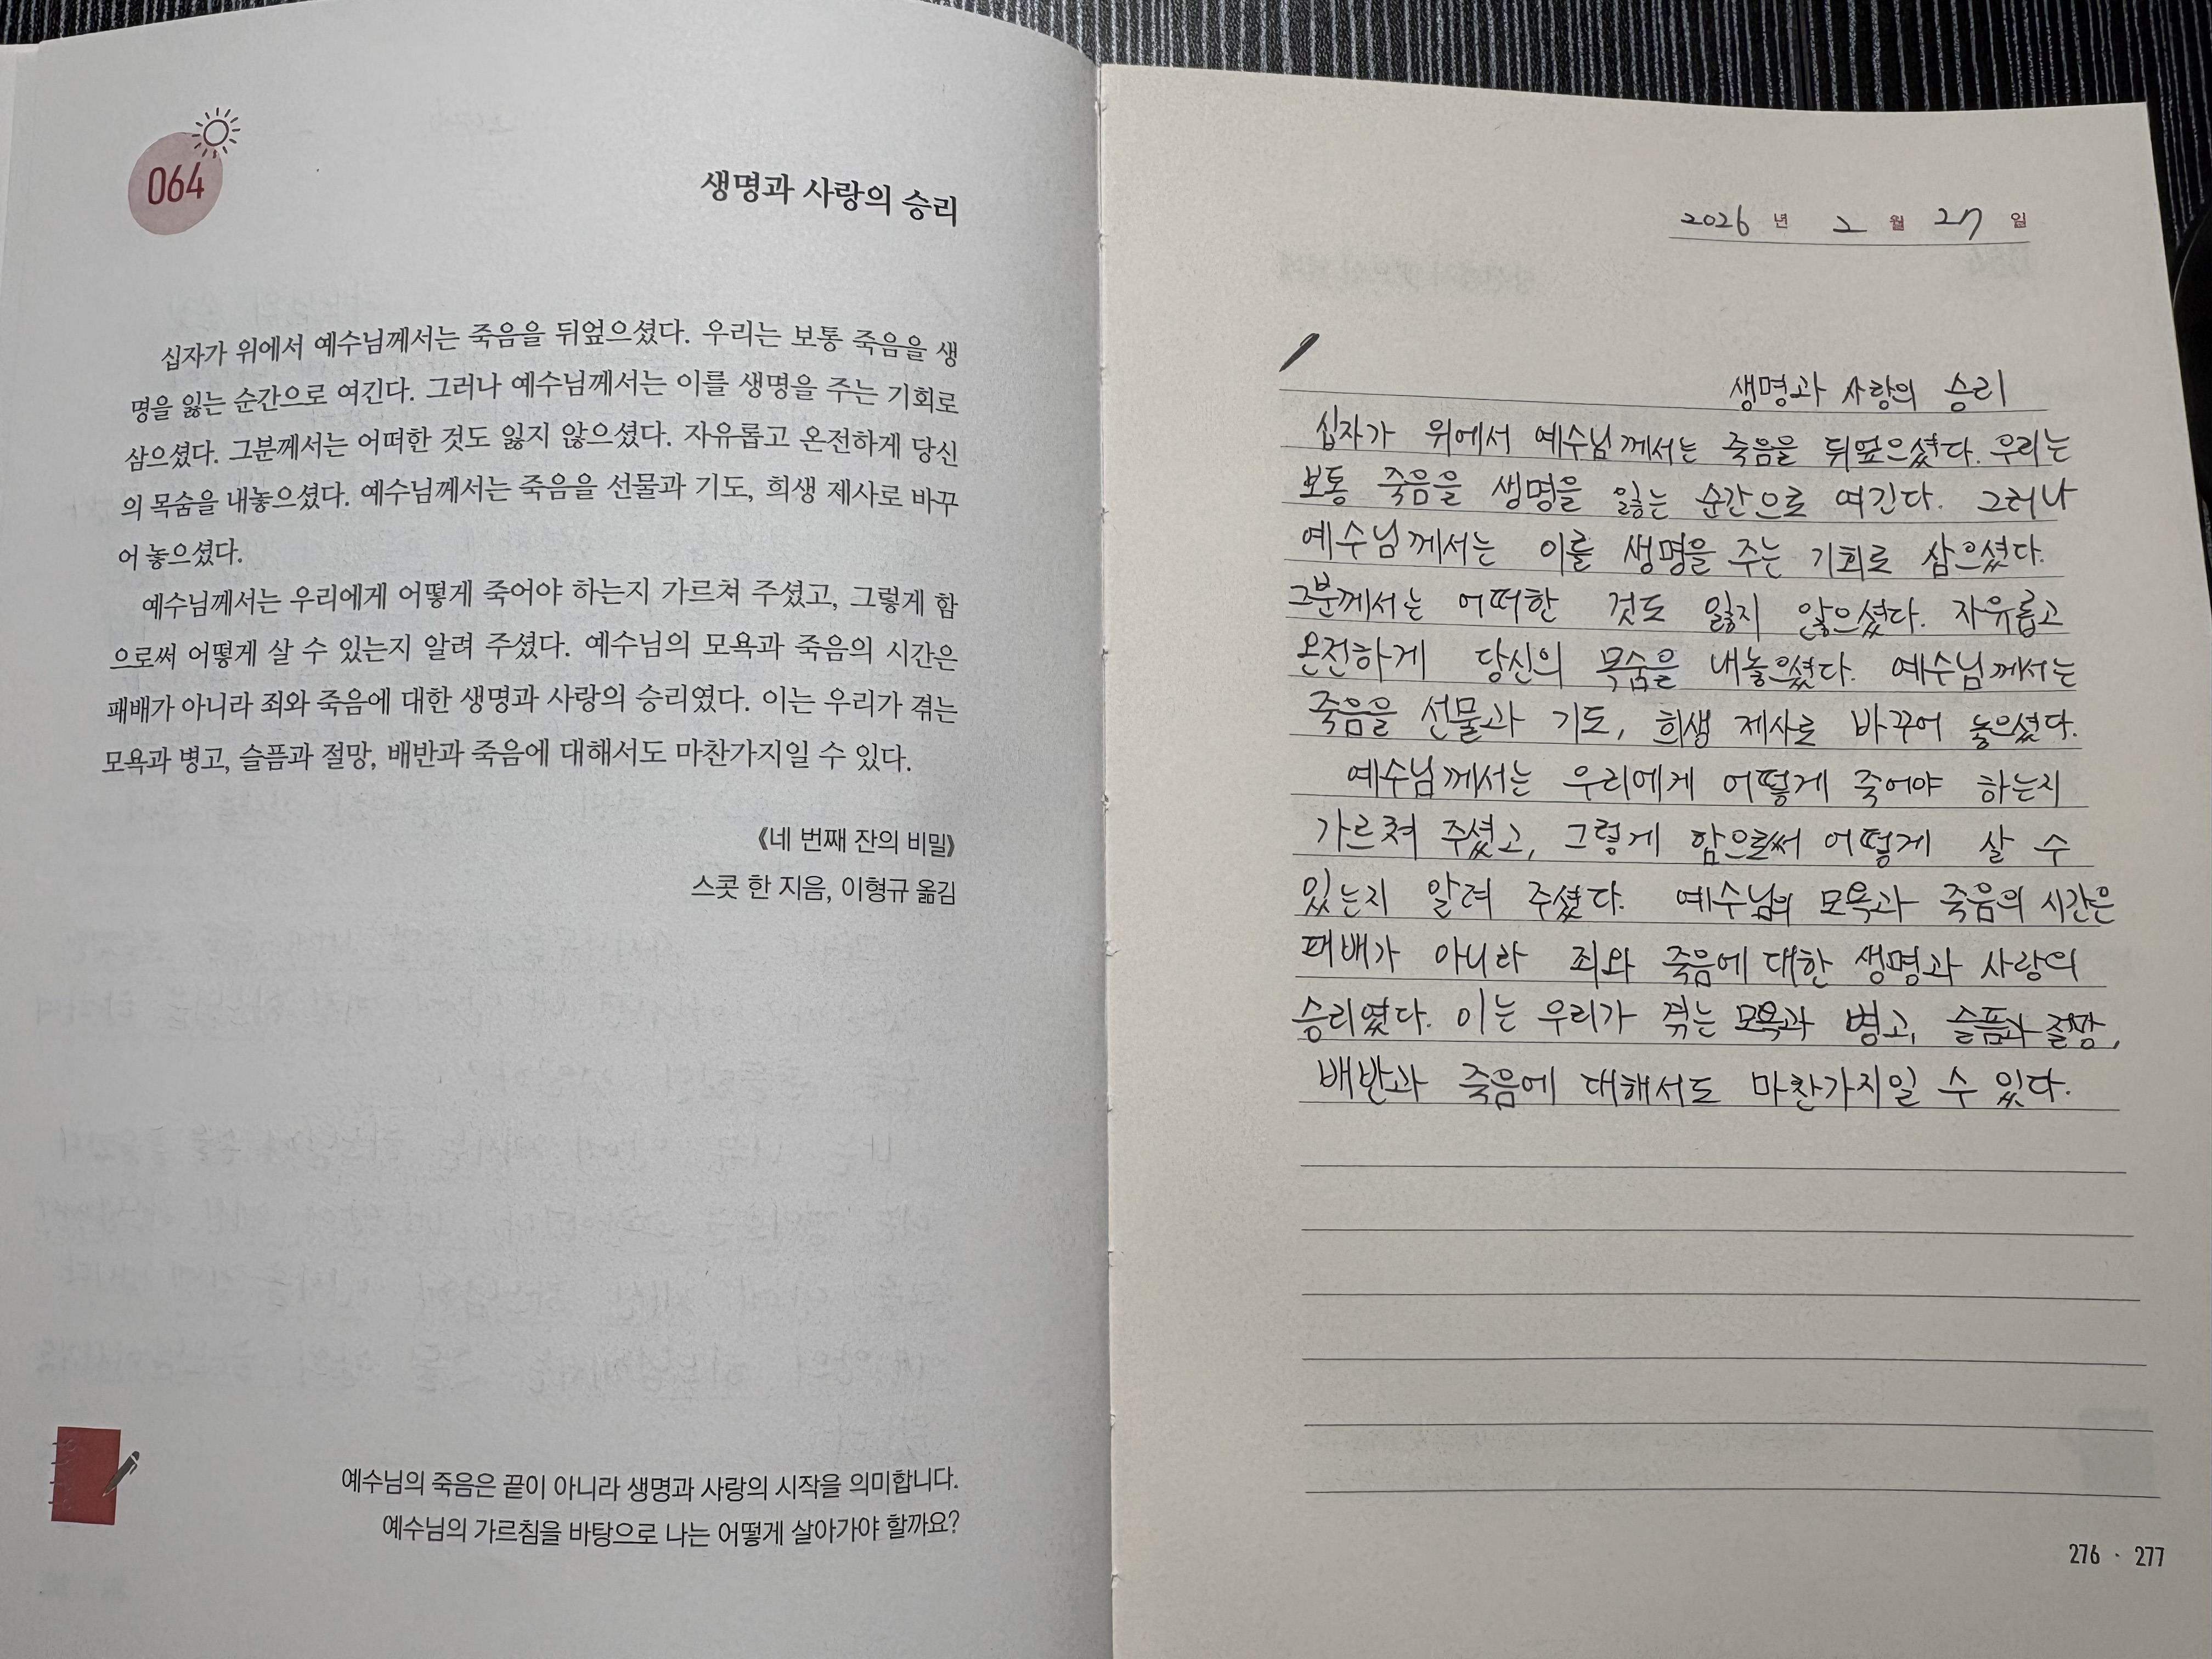 064
생명과 사랑의 승리
십자가 위에서 예수님께서는 죽음을 뒤엎으셨다. 우리는 보통 죽음을 생
명을 잃는 순간으로 여긴다. 그러나 예수님께서는 이를 생명을 주는 기회로
삼으셨다. 그분께서는 어떠한 것도 잃지 않으셨다. 자유롭고 온전하게 당신
의 목숨을 내놓으셨다. 예수님께서는 죽음을 선물과 기도, 희생 제사로 바꾸
어 놓으셨다.
예수님께서는 우리에게 어떻게 죽어야 하는지 가르쳐 주셨고, 그렇게 함
으로써 어떻게 살 수 있는지 알려 주셨다. 예수님의 모욕과 죽음의 시간은
패배가 아니라 죄와 죽음에 대한 생명과 사랑의 승리였다. 이는 우리가 겪는
모욕과 병고, 슬픔과 절망, 배반과 죽음에 대해서도 마찬가지일 수 있다.
《네 번째 잔의 비밀》
스콧 한 지음, 이형규 옮김
예수님의 죽음은 끝이 아니라 생명과 사랑의 시작을 의미합니다.
예수님의 가르침을 바탕으로 나는 어떻게 살아가야 할까요?
2026 년 2 월 27 일
생명과 사랑의 승리
십자가 위에서 예수님께서는 죽음을 뒤엎으셨다. 우리는
보통 죽음을 생명을 잃는 순간으로 여긴다. 그러나
예수님께서는 이를 생명을 주는 기회로 삼으셨다.
그분께서는 어떠한 것도 잃지 않으셨다. 자유롭고
온전하게 당신의 목숨을 내놓으셨다. 예수님께서는
죽음을 선물과 기도, 희생 제사로 바꾸어 놓으셨다.
예수님께서는 우리에게 어떻게 죽어야 하는지
가르쳐 주셨고, 그렇게 함으로써 어떻게 살 수
있는지 알려 주셨다. 예수님의 모욕과 죽음의 시간은
패배가 아니라 죄와 죽음에 대한 생명과 사랑의
승리였다. 이는 우리가 겪는 모욕과 병고, 슬픔과 절망,
배반과 죽음에 대해서도 마찬가지일 수 있다.
276 · 277